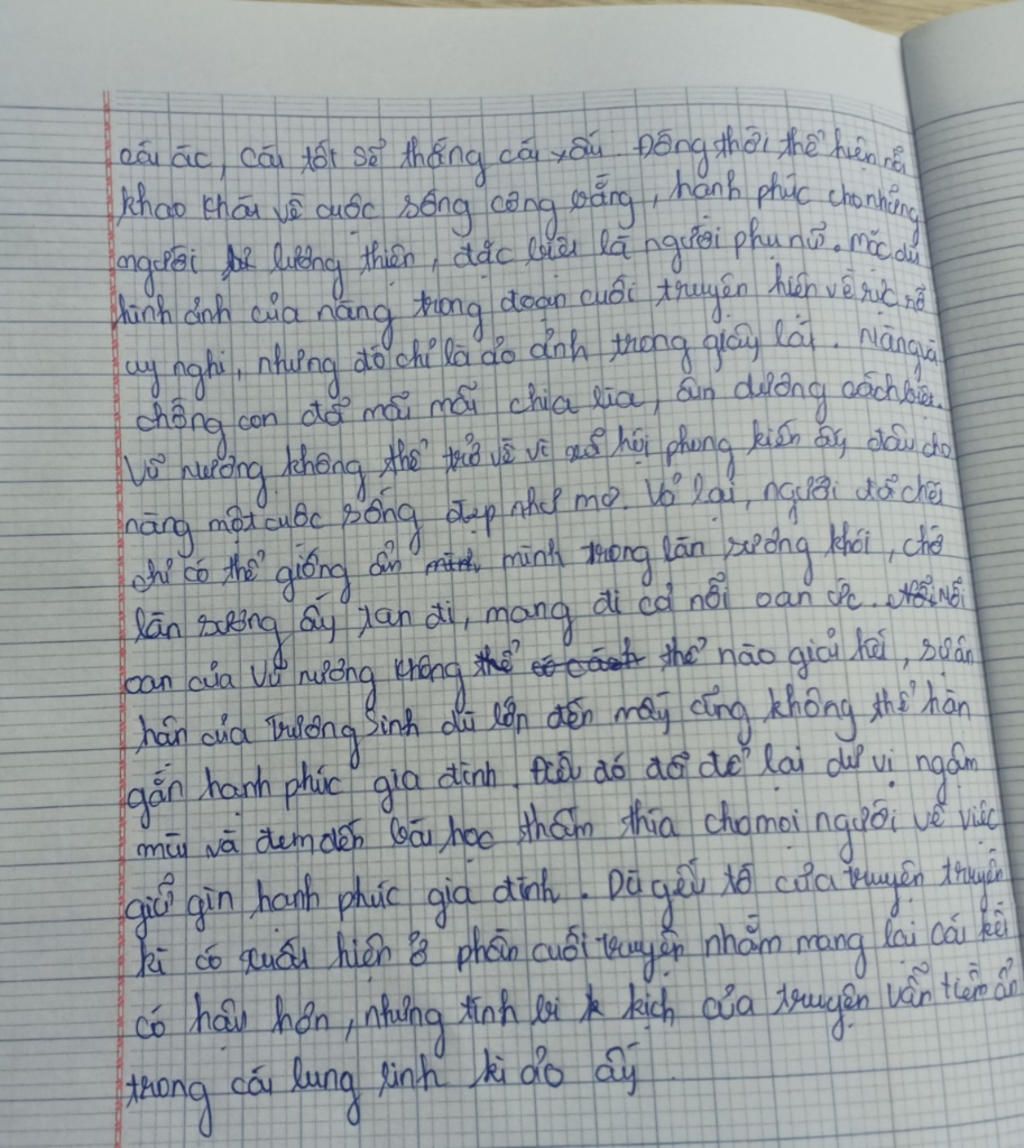 cái ác, cái tốt sẽ thắng cái xấu. Đồng thời thể hiện nỗi
khao khát về cuộc sống công bằng, hạnh phúc cho những
người lương thiện, đặc biệt là người phụ nữ. Mặc dù
hình ảnh của nàng trong đoạn cuối truyện hiện về rực rỡ
uy nghi, nhưng đó chỉ là ảo ảnh trong giây lát. Nàng và
chồng con đã mãi mãi chia lìa, âm dương cách biệt.
Vũ Nương không thể trở về vì xã hội phong kiến ấy đâu cho
nàng một cuộc sống đẹp như mơ. Vả lại, người đã chết
chỉ có thể giống ẩn mình trong làn sương khói, chờ
làn sương ấy tan đi, mang đi cả nỗi oan ức. Nỗi
oan của Vũ Nương không thể nào giải hết, sự ân
hận của Trương Sinh dù lớn đến mấy cũng không thể hàn
gắn hạnh phúc gia đình. đó đã để lại dư vị ngậm
mùi và đem đến bài học thấm thía cho mọi người về việc
giữ gìn hạnh phúc gia đình. Dù yếu tố của truyện truyền
kì có xuất hiện ở phần cuối truyện nhằm mang lại cái kết
có hậu hơn, nhưng tính bi kịch của truyện vẫn tiềm ẩn
trong cái lung linh kì ảo ấy